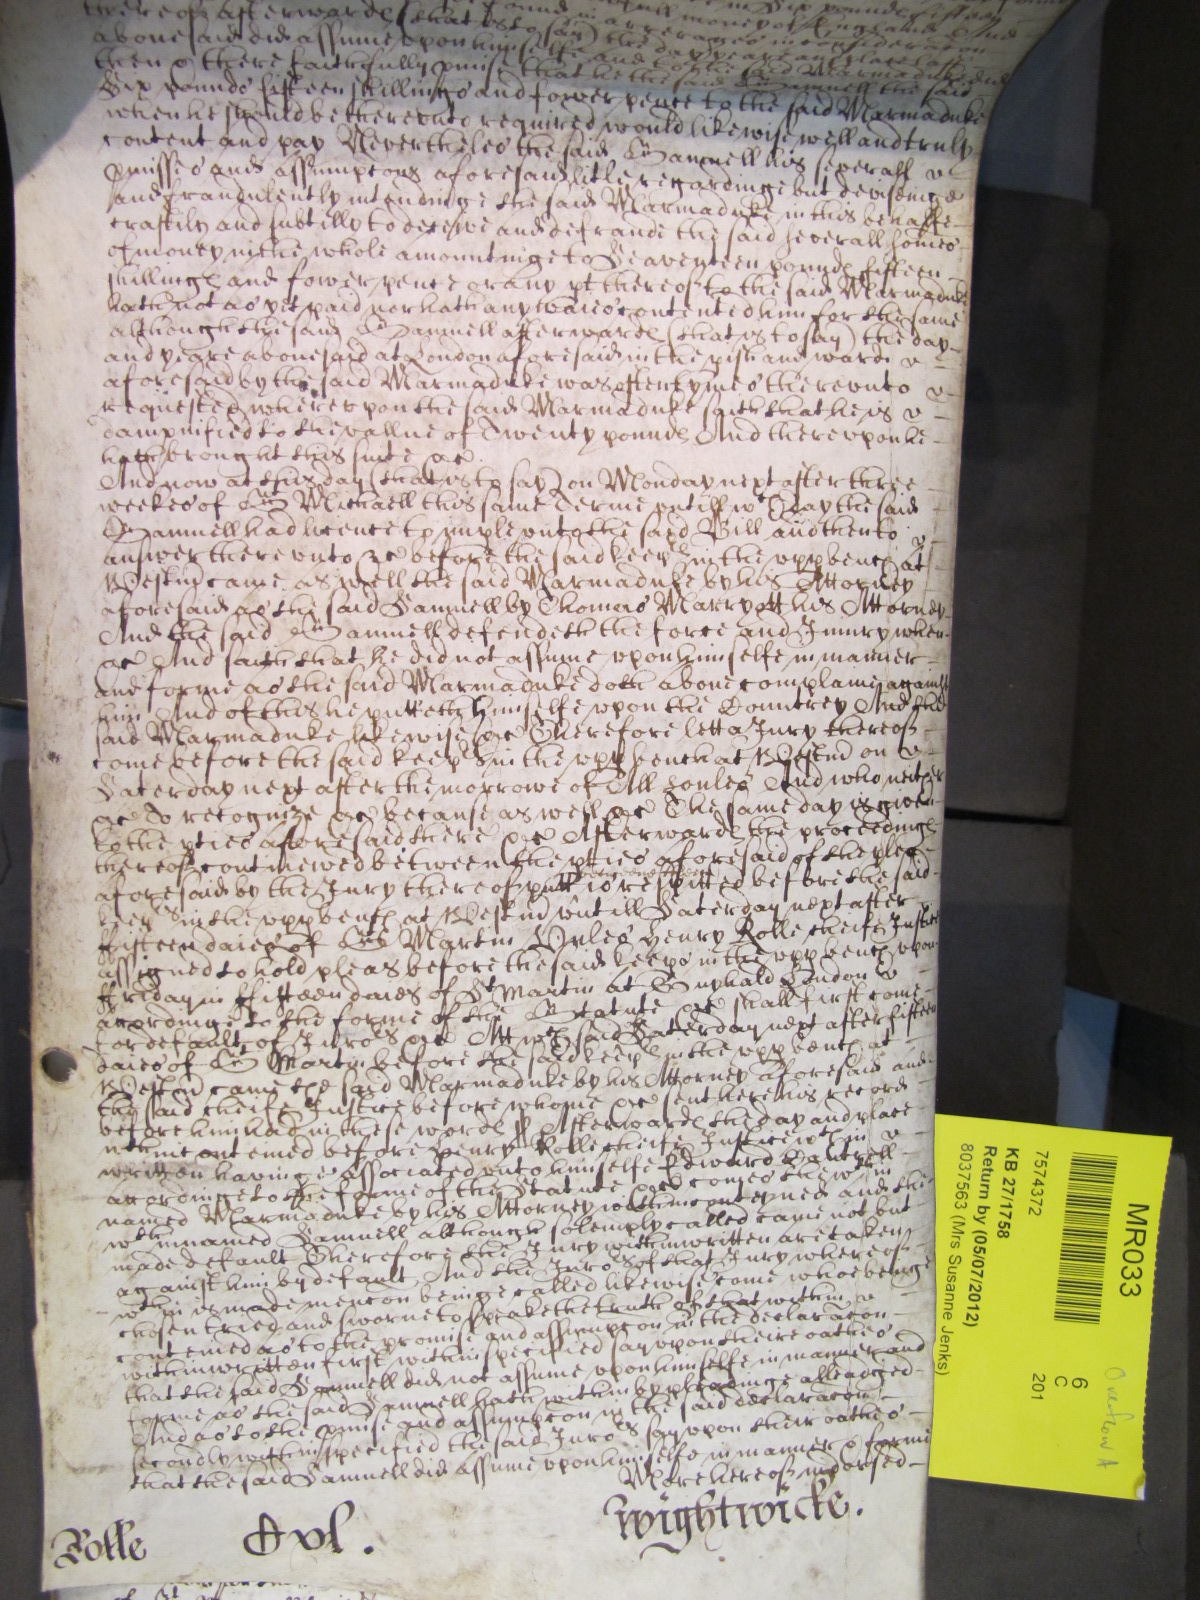 thereof afterwards (that is to say) the day yeare and place last
abovesaid did assume upon himselfe and to the said Marmaduke did
then & there faithfully pmise that he the said Samuell the said
Six pounds fifteen shillings and fower pence to the said Marmaduke
when he should be thereunto required would likewise well and truly
content and pay Nevertheles the said Samuell his severall
pmisses and assumptons aforesaid litle regardinge but deviseinge
and fraudulently intendinge the said Marmaduke in this behalfe
craftily and subtilly to deceive and defraude the said severall somes
of money in the whole amountinge to Seaventeen pounds fifteen
shillings and fower pence or any pt thereof to the said Marmaduke
hath not as yet paid nor hath any waies contented him for the same
although the said Samuell afterwards (that is to say) the day
and yeare abovesaid at London aforesaid in the pish and ward
aforesaid by the said Marmaduke was oftentymes thereunto
requested whereupon the said Marmaduke saith that he is
dampnified to the vallue of Twenty pounds And thereupon he
hath brought this suite &c
And now at this day (that is to say) on Monday next after three
weekes of St Michaell this same Terme untill wch day the said
Samuell had licence to imple unto the said Bill and then to
answer thereunto &c before the said keeps in the upp bench at
Westm came as well the said Marmaduke by his Attorney
aforesaid as the said Samuell by Thomas Marryott his Attorney
And the said Samuell defendeth the force and Iniury when
&c And saith that he did not assume upon himselfe in manner
and forme as the said Marmaduke doth above complaine against
him And of this he putteth himselfe upon the Countrey And the
said Marmaduke likewise &c Therefore lett a Jury thereof
come before the said keeps in the upp bench at Westm on
Saterday next after the morrowe of All Soules And who neither
&c To recognize &c because as well &c The same day is given
to the pties aforesaid there &c Afterwards the proceedings
thereof continewed betweene the pties aforesaid of the plea
aforesaid by the Jury thereof putt betweene them is respitted before the said
keeps in the upp bench at Westm untill Saterday next after
fifteen daies of St Martin Unles Henry Rolle cheife Justice
assigned to hold pleas before the said keeps in the upp bench upon
ffriday in ffifteen daies of St Martin at Guyhald London
accordinge to the forme of the Statute &c shall first come
for default of Jurors &c Att wch said Saterday next after fifteen
daies of St Martin before the said keeps in the upp bench at
Westm came the said Marmaduke by his Attorney aforesaid and
the said cheife Justice before whome &c sent here his record
before him had in these words ss Afterwards the day and place
within contemed before Henry Rolle cheife Justice within
written haveinge associated unto himselfe Edward
accordinge to the forme of the Statute &c comes the within
named Marmaduke by his Attorney within contemed and the
within named Samuell although solemply called came not but
made default Therefore the Jury within written are taken
against him by default And the Jurors of that Jury whereof
within is made mencon beinge called likewise come whoe beinge
chosen tried and sworne to speake the truth of that within
contemed as to the promise and assumpcon in the declaracon
within written first within specified say upon theire oathes
that the said Samuell did not assume upon himselfe in manner and
forme as the said Samuell hath within by pleadinge alleadged
And as to the pmise and assumpcon in the said declaracon
secondly within specified the said Jurors say upon their oathes
that the said Samuell did assume upon himselfe in manner & forme
More hereof indorsed
Rolle
Ovl.
Wightwicke.
MR033
6
C
201
7574372
KB 27/1758
Return by (05/07/2012)
8037563 (Mrs Susanne Jenks)
Overflow A